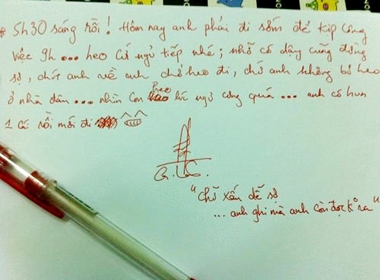 5h30 sáng rồi! Hôm nay anh phải đi sớm để kịp công
việc 9h ... heo cứ ngủ tiếp nhé; nhỡ có dậy cũng đừng
sợ, chút anh về mà, chở heo đi, chứ anh không bỏ heo
ở nhà đâu ... nhìn con heo lúc ngủ cưng quá ... anh có hun
1 cái rồi mới đi
"Chữ xấu dễ sợ
... anh ghi mà anh còn đọc k° ra"